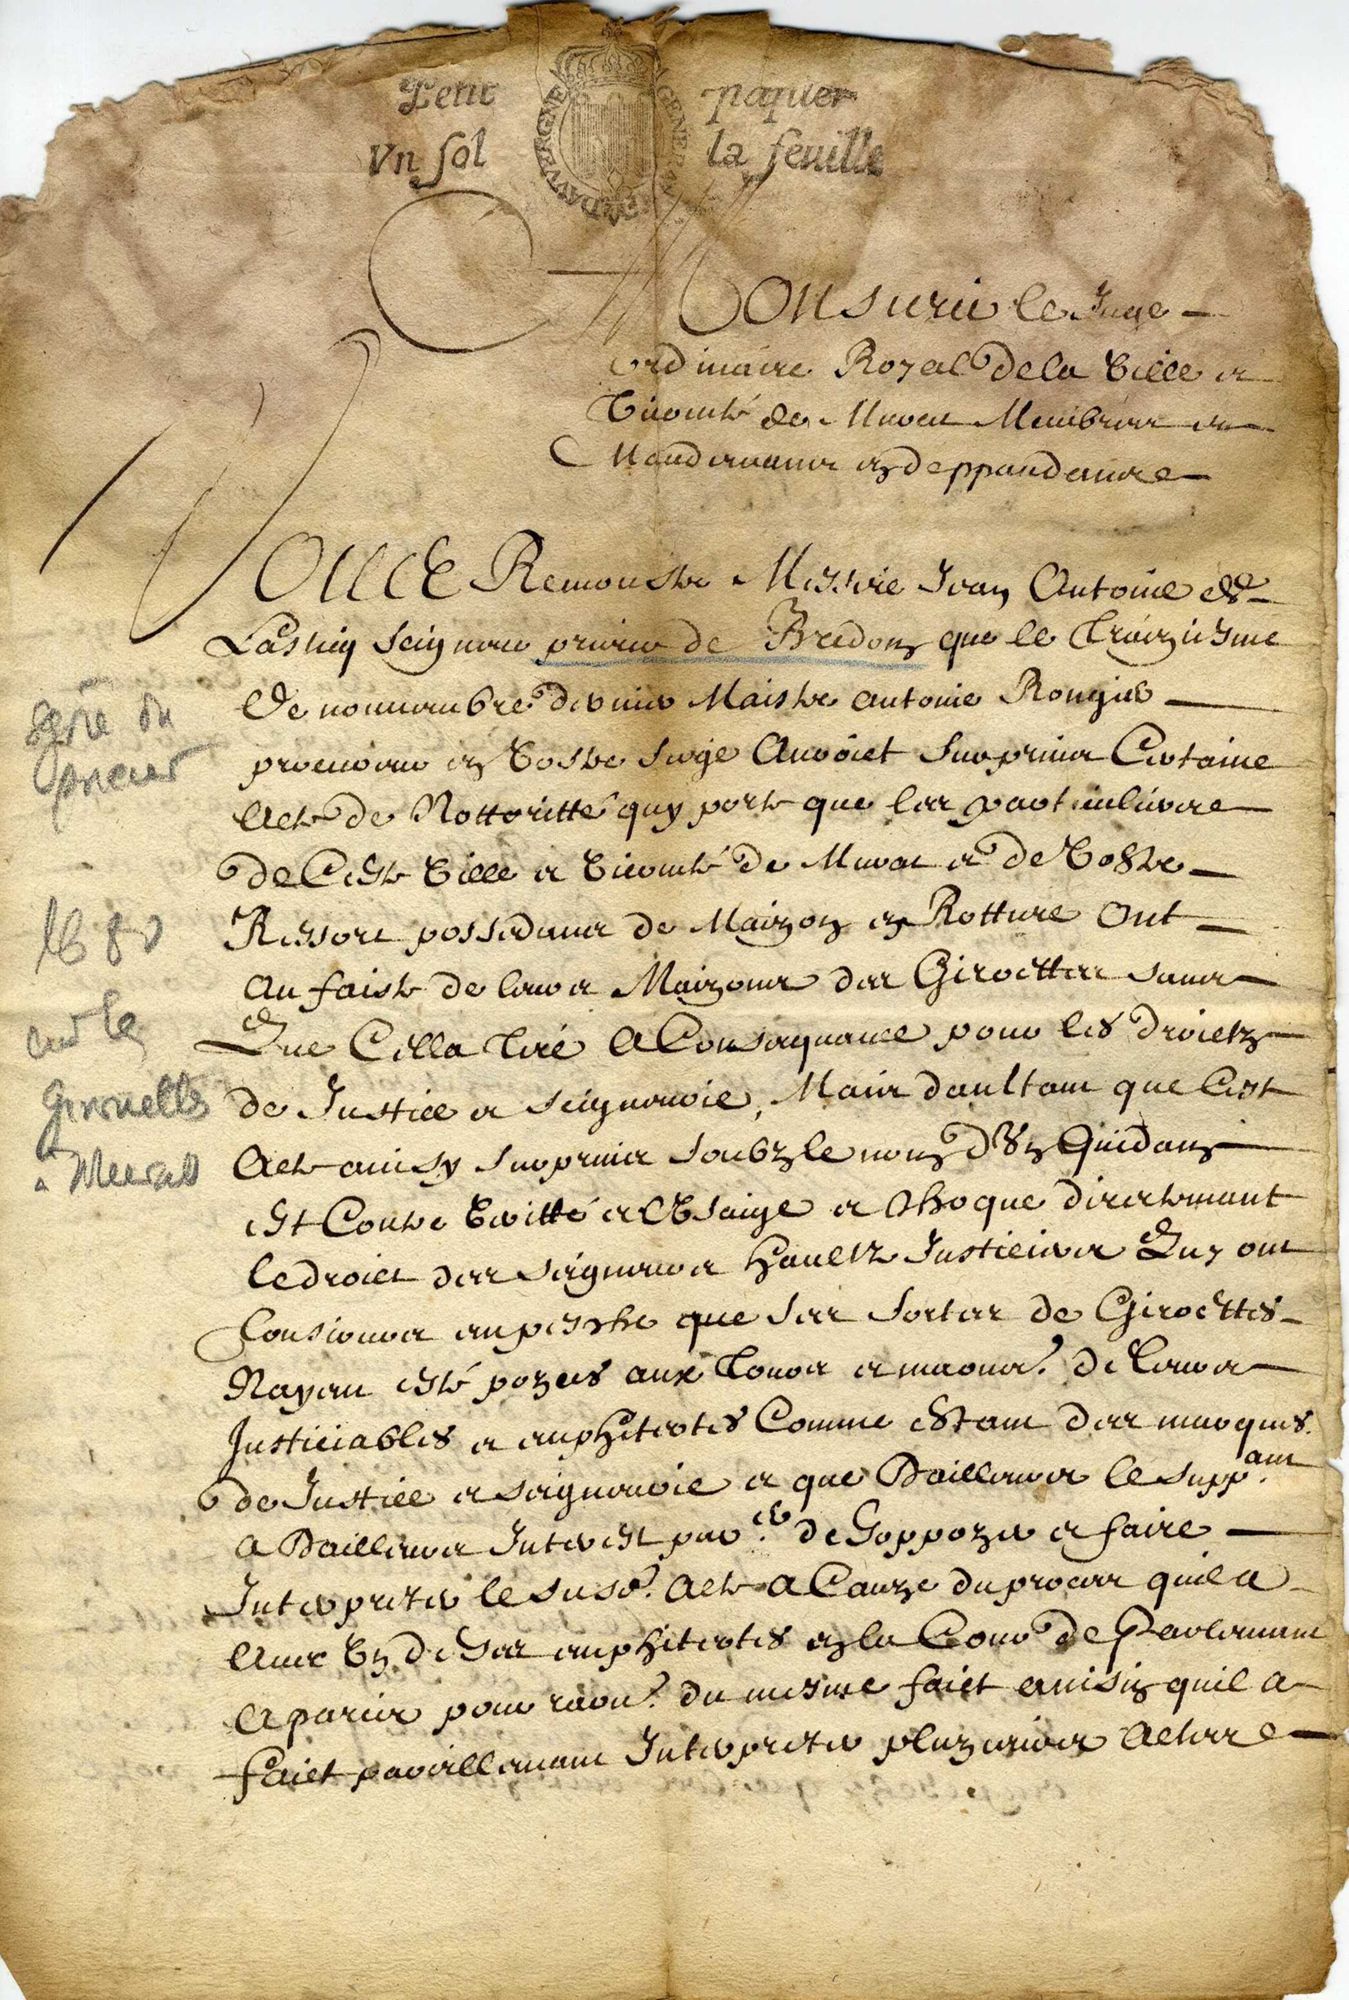 Petit papier
Vn sol la feuille
GENERA DAUVERGNE
A Monsieur le Juge
ordinaire Royal de la Ville et
Vicomté de Murat Membres et
Mandemans en deppandans
Vous Remonstre Messire Jean Antoine de
Lastiq Seigneur prieur de Bredonz que le Troiziesme
de nouvambre dernier Maistre Antoine Rougier
procureur en Vostre siege Auroict surprins Certaine
Acte de Nottoritté quy porte que les particulieres
de Ceste Ville et Vicomté de Murat et de Vostre
Ressort possedans de Maizon en Rotture Ont
au faiste de leurs Maizons des Giroëttes sans
Que Cella tiré A Consequance pour les droictz
de Justice et seigneurie, Mais daultant que Cest
Acte ainsy surprins soubz le nom dVn Quidanz
est Contre Veritté et lVsaige et Choque directemant
le droict des seigneurs Haultz Justiciers Quy ont
tousiours enpesche que ses sortes de Giroëttes
Nayent esté pozées aux tours et maons. de leurs
Justiciables et enphiteotes Comme estant des marques
de Justice et seigneurie et que Dailleurs le suppant
A Dailleurs Interest parer. de Soppozer et faire
Interpreter le susd. Acte A Cauze du proces quil a
Auec Vn de Ses enphiteotes en la Cour de Parlemant
A paris pour raon. du mesme faict ainsin quil a
faict pareillemant Interpreter pluzieurs Actes
reqte du
prieur
1680
sur les
girouettes
a Murat